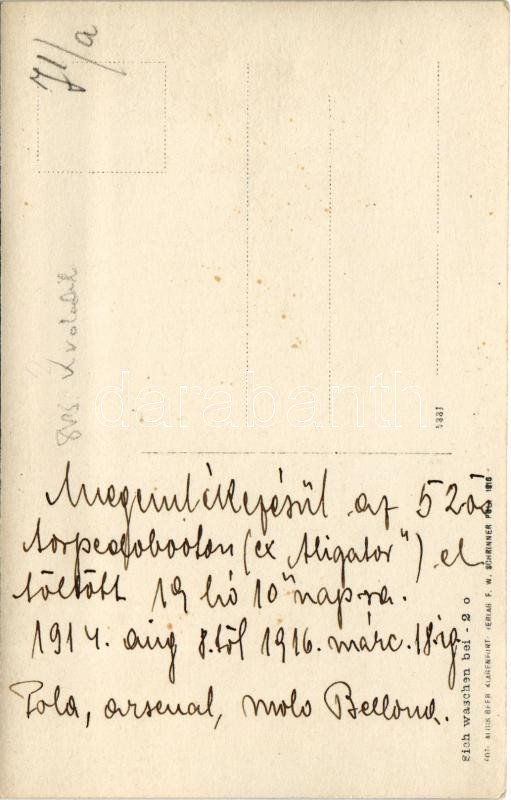 71/a
Megemlékezésül az 52ös
torpedobooton (ex "Aligator") el
töltött 19 hó 10 napra.
1914. aug 8.tól 1916. márc. 18ig
Pola, arsenal, molo Bellona.
sich waschen bei - 2 o
FOT. ALOIS BEER KLAGENFURT. VERLAG F. W. SCHRINNER POLA 1916
darabanth